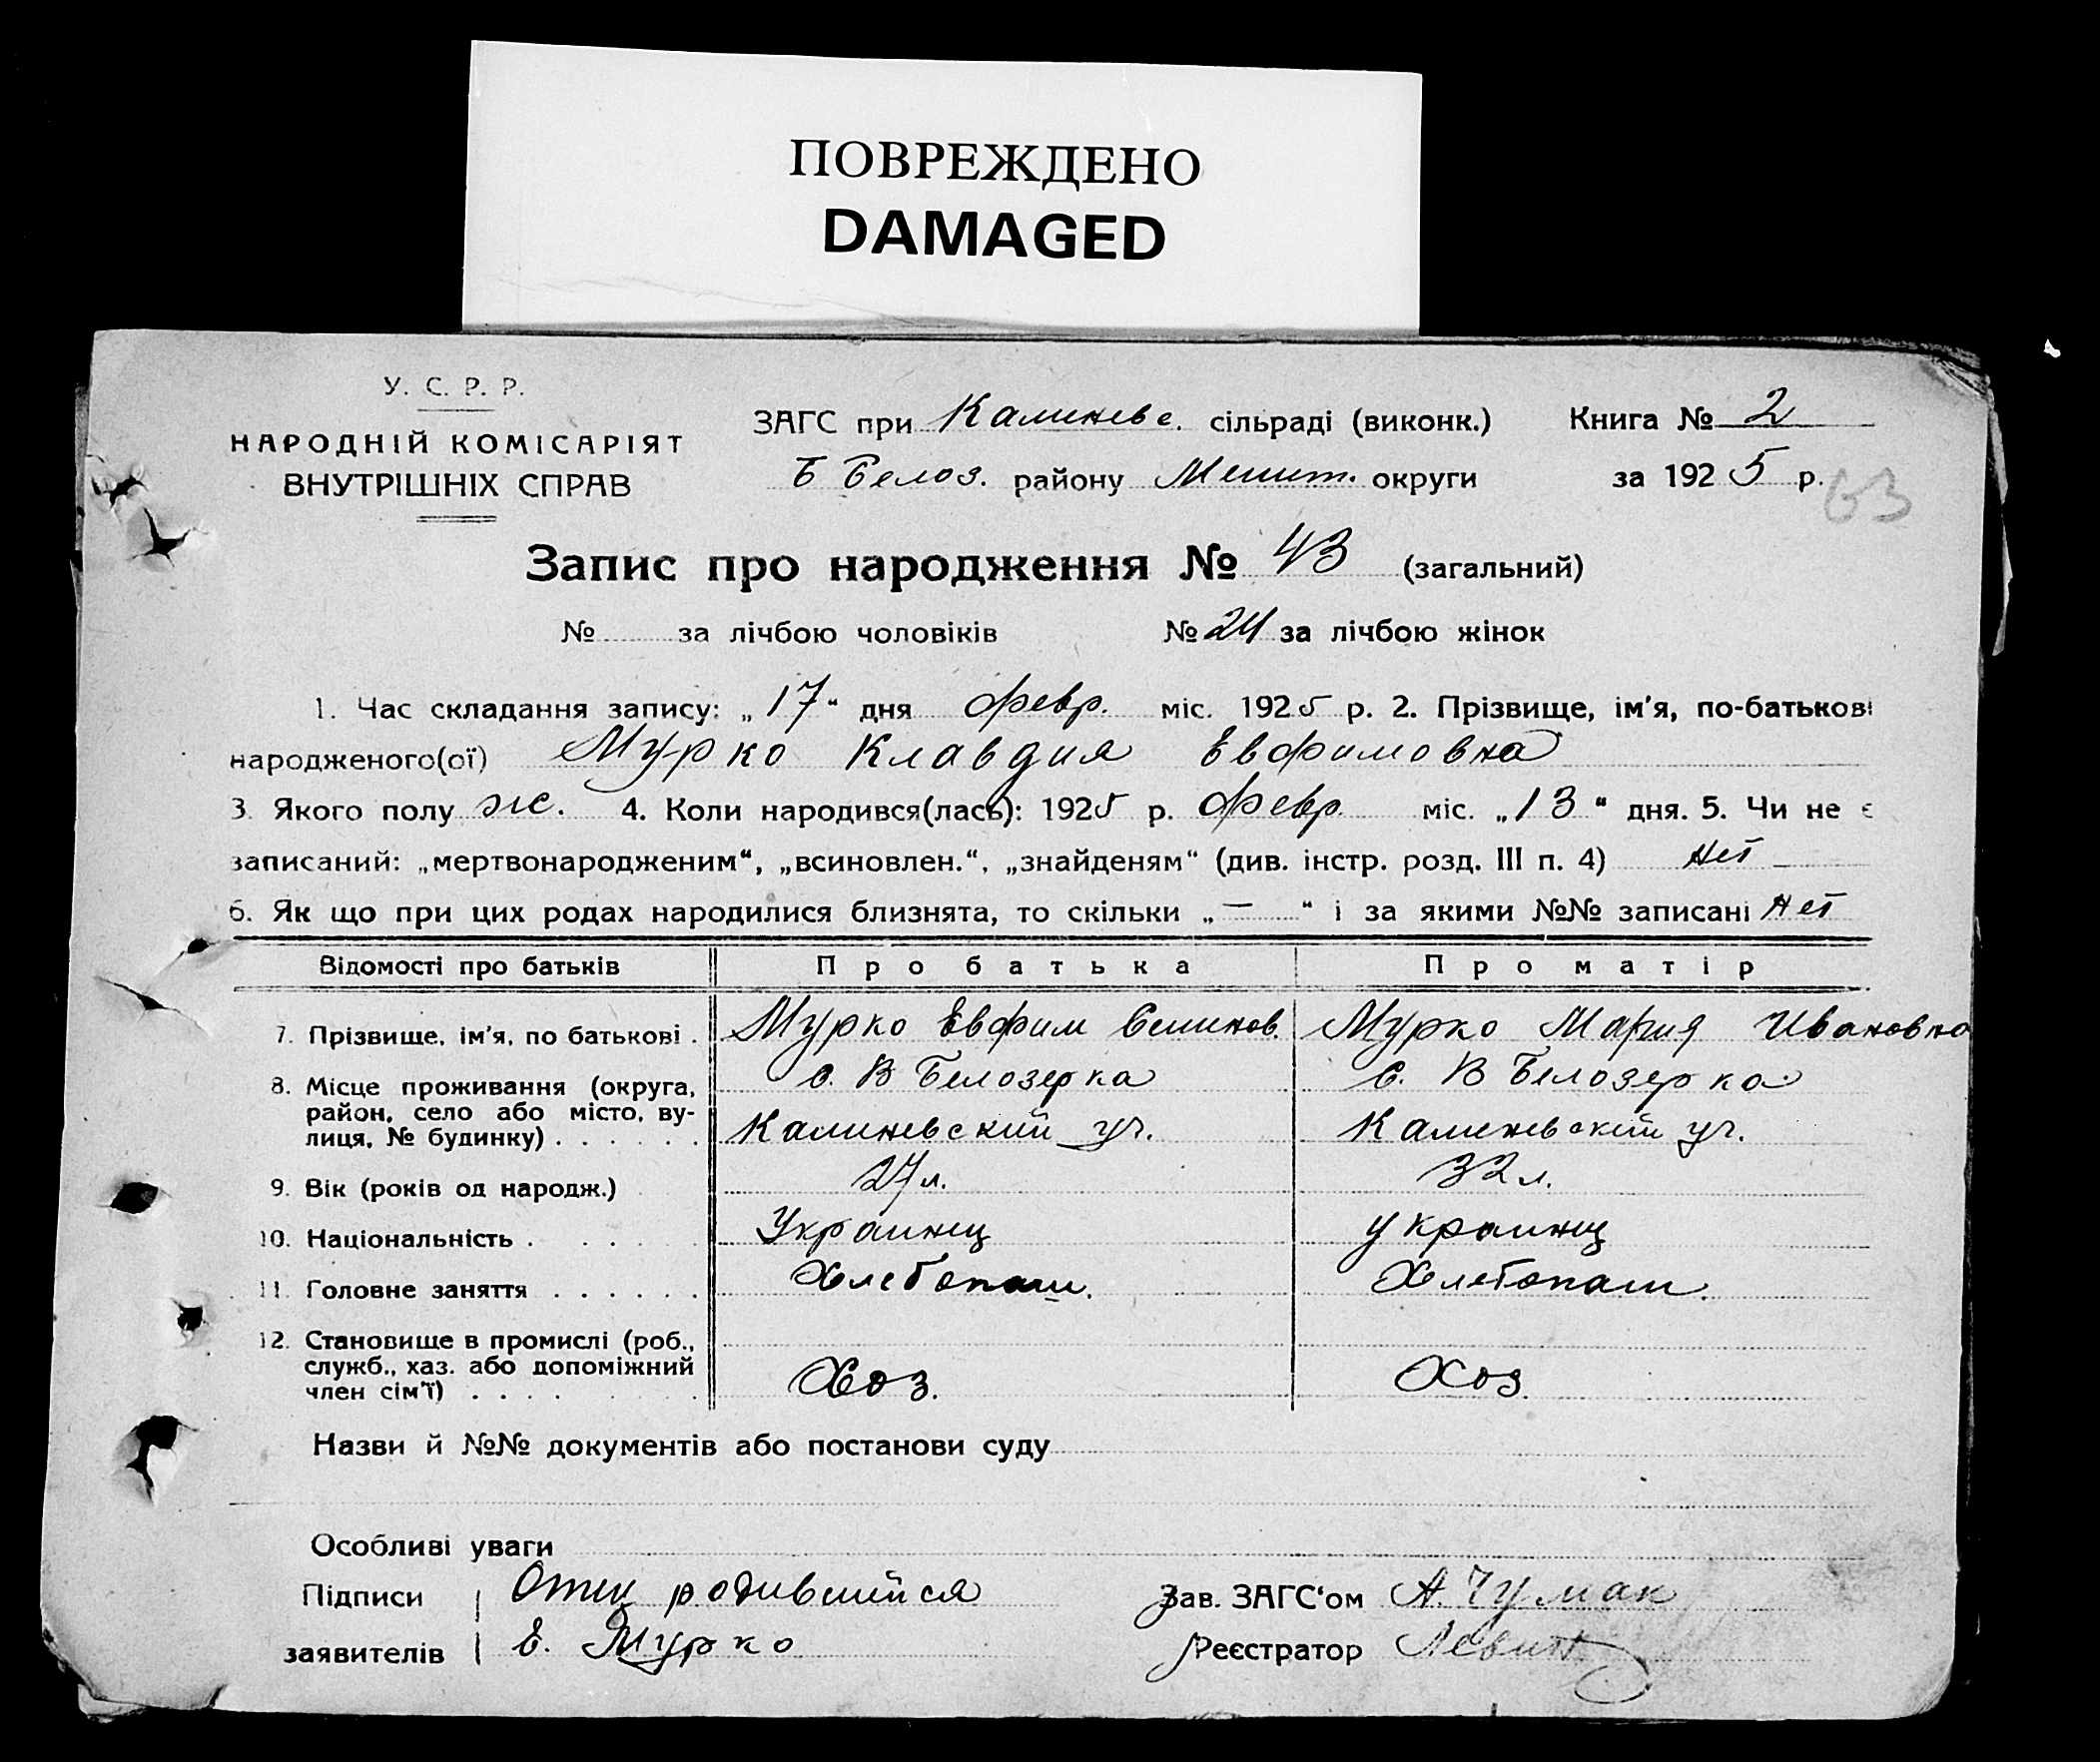 ПОВРЕЖДЕНО
DAMAGED
У. С. Р. Р.
НАРОДНІЙ КОМІСАРІЯТ
ВНУТРІШНІХ СПРАВ
ЗАГС при Калиневс. сільраді (виконк.)
Б Белоз. району Мелит. округи
Книга № 2
за 1925 р.
63
Запис про народження № 43 (загальний)
№ за лічбою чоловіків № 24 за лічбою жінок
1. Час складання запису: „17“ дня февр. міс. 1925 р. 2. Прізвище, ім'я, по-батькові
народженого(ої) Мурко Клавдия Евфимовна
3. Якого полу же. 4. Коли народився(лась): 1925 р. февр. міс. „13“ дня. 5. Чи не є
записаний: „мертвонародженим“, „всиновлен.“, „знайденям“ (див. інстр. розд. III п. 4) нет
6. Як що при цих родах народилися близнята, то скільки „—“ і за якими №№ записані нет
Відомості про батьків Про батька Про матір
7. Прізвище, ім'я, по батькові . Мурко Евфим Семинов. Мурко Мария Ивановна
8. Місце проживання (округа, район, село або місто, вулиця, № будинку) . . . . . . с. В Белозерка с. В Белозерка
Калиневский уч. Калиневский уч.
9. Вік (років од народж.) 27 л. 32 л.
10. Національність . . . . . Украинц украинц
11. Головне заняття . . . . . . Хлебопаш. Хлебопаш.
12. Становище в промислі (роб., служб., хаз. або допоміжний член сім'ї) . . . . Хоз. Хоз.
Назви й №№ документів або постанови суду
Особливі уваги
Підписи заявителів Отец родившийся
Е. Мурко
Зав. ЗАГС'ом А. Чумак
Реєстратор